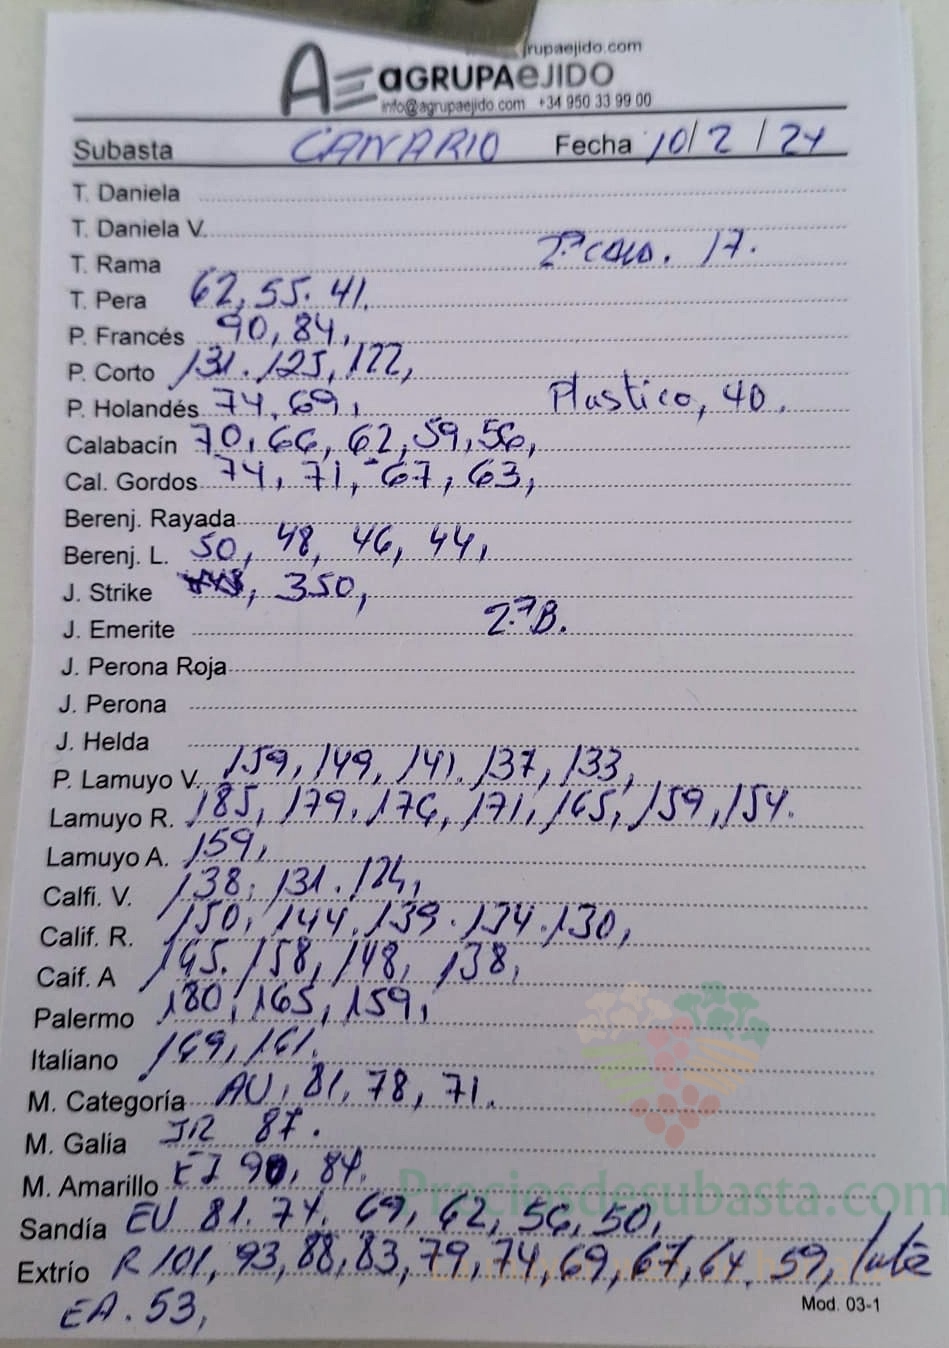 rupaejido.com
AE aGRUPAeJIDO
info@agrupaejido.com +34 950 33 99 00
Subasta CANARIO Fecha 10/2/24
T. Daniela
T. Daniela V.
T. Rama 17.
T. Pera 62, 55. 41.
P. Francés 90, 84,
P. Corto 131. 125, 122,
P. Holandés 74, 69, Plastico, 40.
Calabacín 70, 66, 62, 59, 56,
Cal. Gordos 74, 71, 67, 63,
Berenj. Rayada
Berenj. L. 50, 48, 46, 44,
J. Strike , 350,
J. Emerite 2.ª B.
J. Perona Roja
J. Perona
J. Helda
P. Lamuyo V. 159, 149, 141. 137, 133,
Lamuyo R. 185, 179. 176, 171, 165, 159, 154.
Lamuyo A. 159,
Calfi. V. 138, 131. 124,
Calif. R. 150, 144. 139. 134. 130,
Caif. A 158, 148, 138,
Palermo 180, 165, 159,
Italiano 169, 161.
M. Categoría 81, 78, 71.
M. Galia 87.
M. Amarillo EJ 90, 84.
Preciosdesubasta.com
Sandía EU 81. 74. 69, 62, 56, 50,
Extrío R 101, 93, 88, 83, 79, 74, 69, 67, 64. 59,
EA. 53,
Mod. 03-1